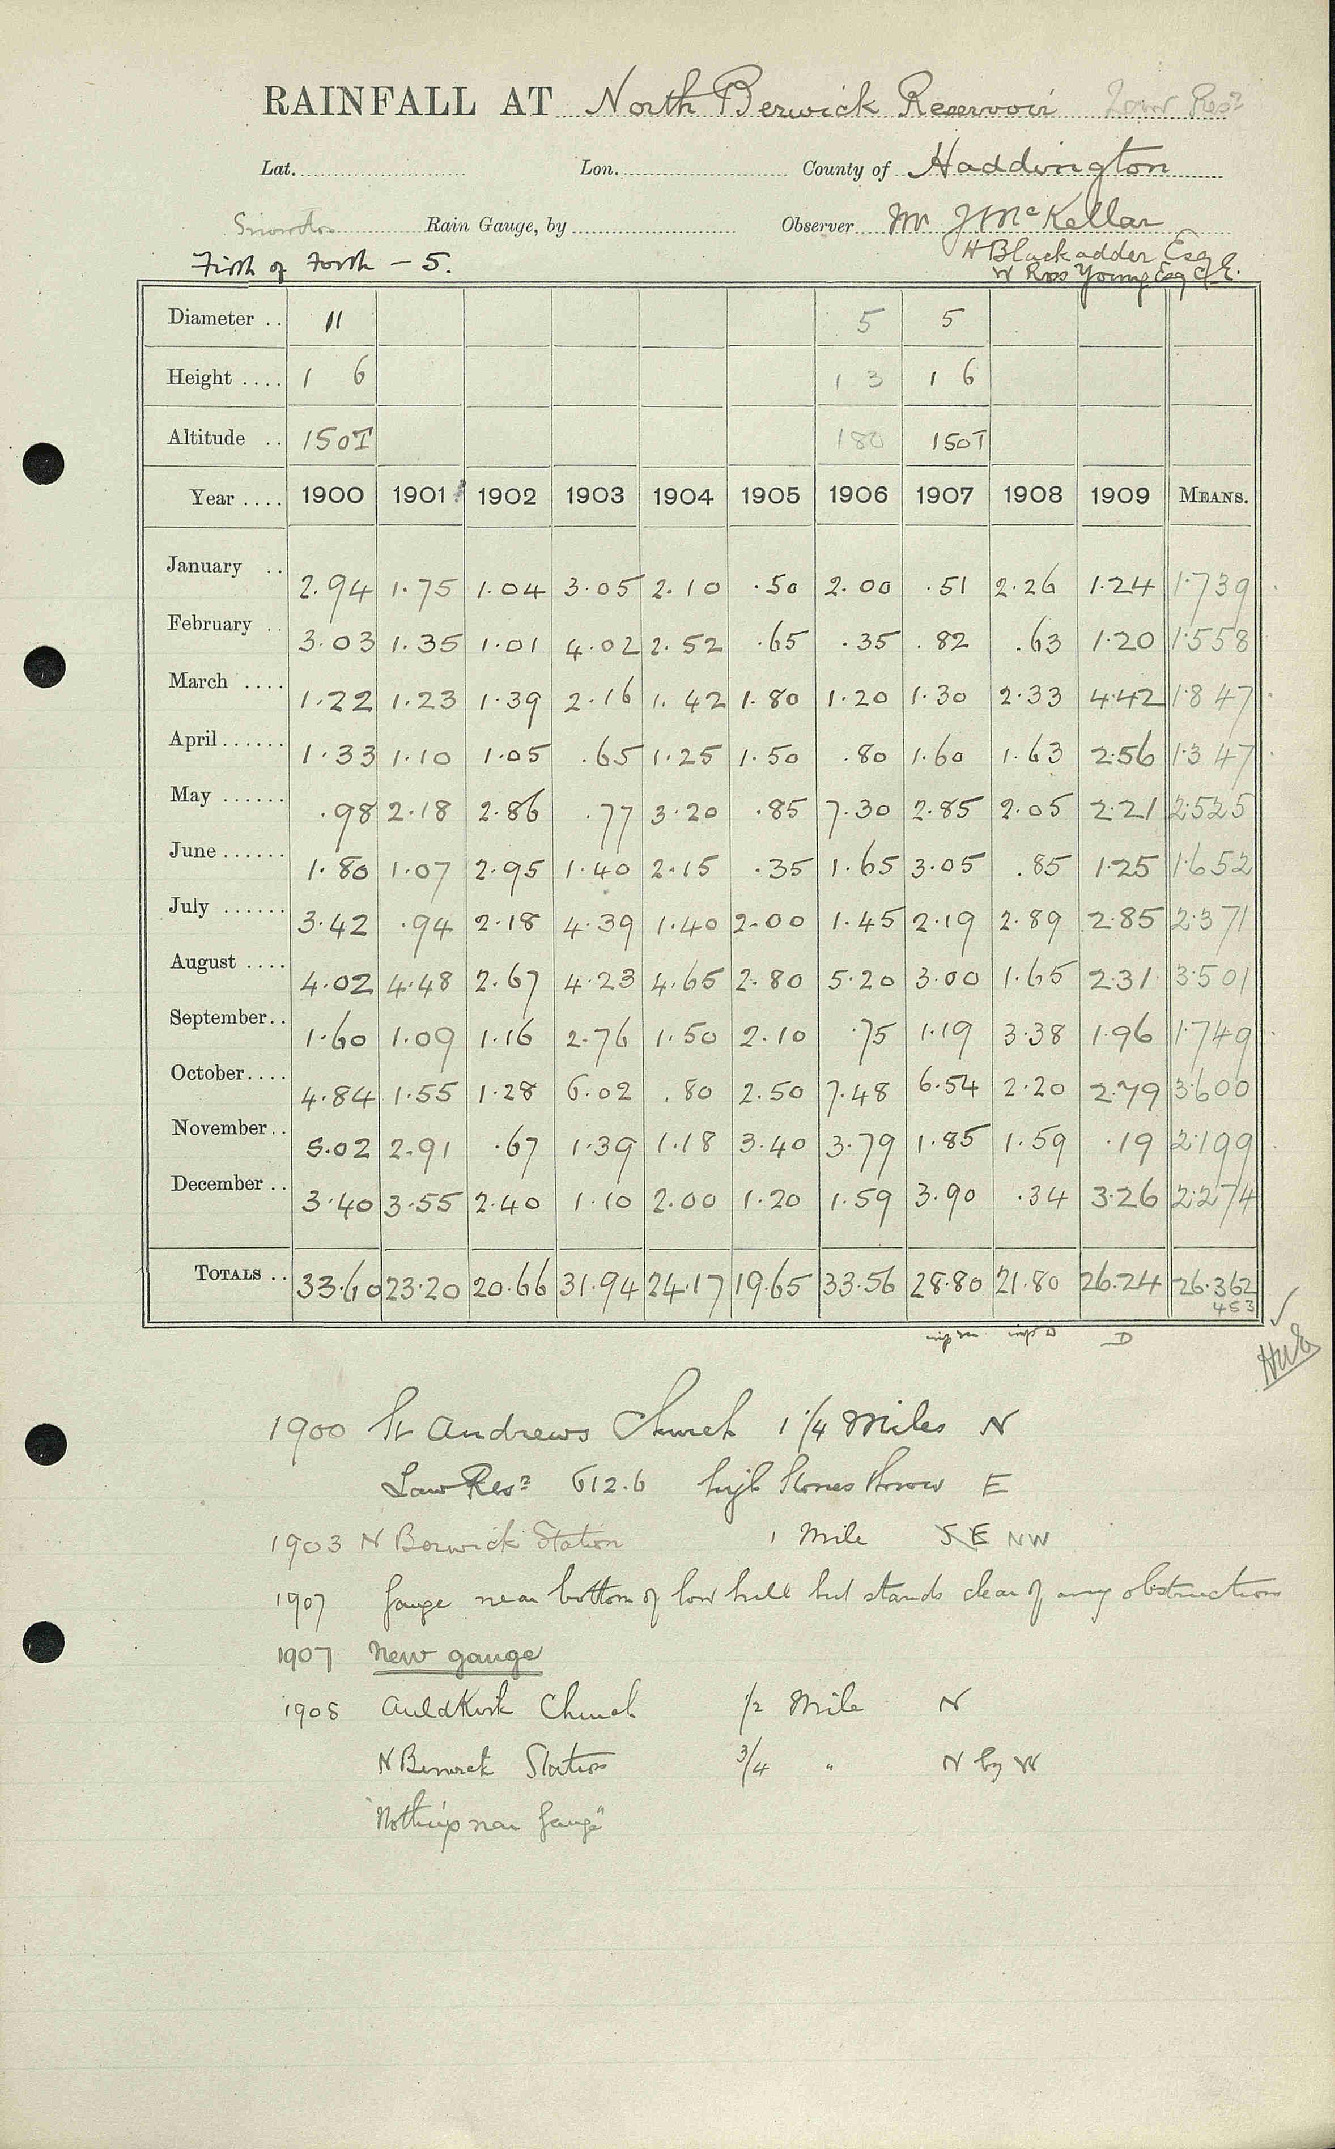 RAINFALL AT North Berwick Reservoir Low Resr
Lat. Lon. County of Haddington
Snowdon Rain Gauge, by Observer Mr J McKellar
Firth of Forth - 5. H Blackadder Esq
W Ross Young Esq C.E.
Diameter .. 11 5 5
Height .... 1 6 1 3 1 6
Altitude .. 150T 180 150T
Year .... 1900 1901 1902 1903 1904 1905 1906 1907 1908 1909 MEANS.
January .. 2.94 1.75 1.04 3.05 2.10 .50 2.00 .51 2.26 1.24 1.739
February .. 3.03 1.35 1.01 4.02 2.52 .65 .35 .82 .63 1.20 1.558
March .... 1.22 1.23 1.39 2.16 1.42 1.80 1.20 1.30 2.33 4.42 1.847
April ...... 1.33 1.10 1.05 .65 1.25 1.50 .80 1.60 1.63 2.56 1.347
May ...... .98 2.18 2.86 .77 3.20 .85 7.30 2.85 2.05 2.21 2.525
June ...... 1.80 1.07 2.95 1.40 2.15 .35 1.65 3.05 .85 1.25 1.652
July ...... 3.42 .94 2.18 4.39 1.40 2.00 1.45 2.19 2.89 2.85 2.371
August .... 4.02 4.48 2.67 4.23 4.65 2.80 5.20 3.00 1.65 2.31 3.501
September .. 1.60 1.09 1.16 2.76 1.50 2.10 .75 1.19 3.38 1.96 1.749
October .... 4.84 1.55 1.28 6.02 .80 2.50 7.48 6.54 2.20 2.79 3.600
November .. 5.02 2.91 .67 1.39 1.18 3.40 3.79 1.85 1.59 .19 2.199
December .. 3.40 3.55 2.40 1.10 2.00 1.20 1.59 3.90 .34 3.26 2.274
TOTALS .. 33.60 23.20 20.66 31.94 24.17 19.65 33.56 28.80 21.80 26.24 26.362
453
D
1900 St Andrews Church 1 1/4 Miles N
Law Resr 612.6 high Stones throw E
1903 N Berwick Station 1 Mile SE NW
1907 Gauge near bottom of low hill but stands clear of any obstructions
1907 New gauge
1908 Auld Kirk Church 1/2 Mile N
N Berwick Station 3/4 " N by W
"Nothing near gauge"